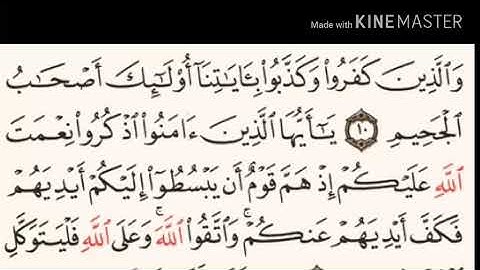 Made with KINEMASTER
وَالَّذِينَ كَفَرُوا وَكَذَّبُوا بِـَٔايَـٰتِنَآ أُوْلَـٰٓئِكَ أَصْحَـٰبُ
الْجَحِيمِ ١٠ يَـٰٓأَيُّهَا الَّذِينَ ءَامَنُوا اذْكُرُوا نِعْمَتَ
اللَّهِ عَلَيْكُمْ إِذْ هَمَّ قَوْمٌ أَن يَبْسُطُوٓا إِلَيْكُمْ أَيْدِيَهُمْ
فَكَفَّ أَيْدِيَهُمْ عَنكُمْ ۖ وَاتَّقُوا اللَّهَ ۚ وَعَلَى اللَّهِ فَلْيَتَوَكَّلِ